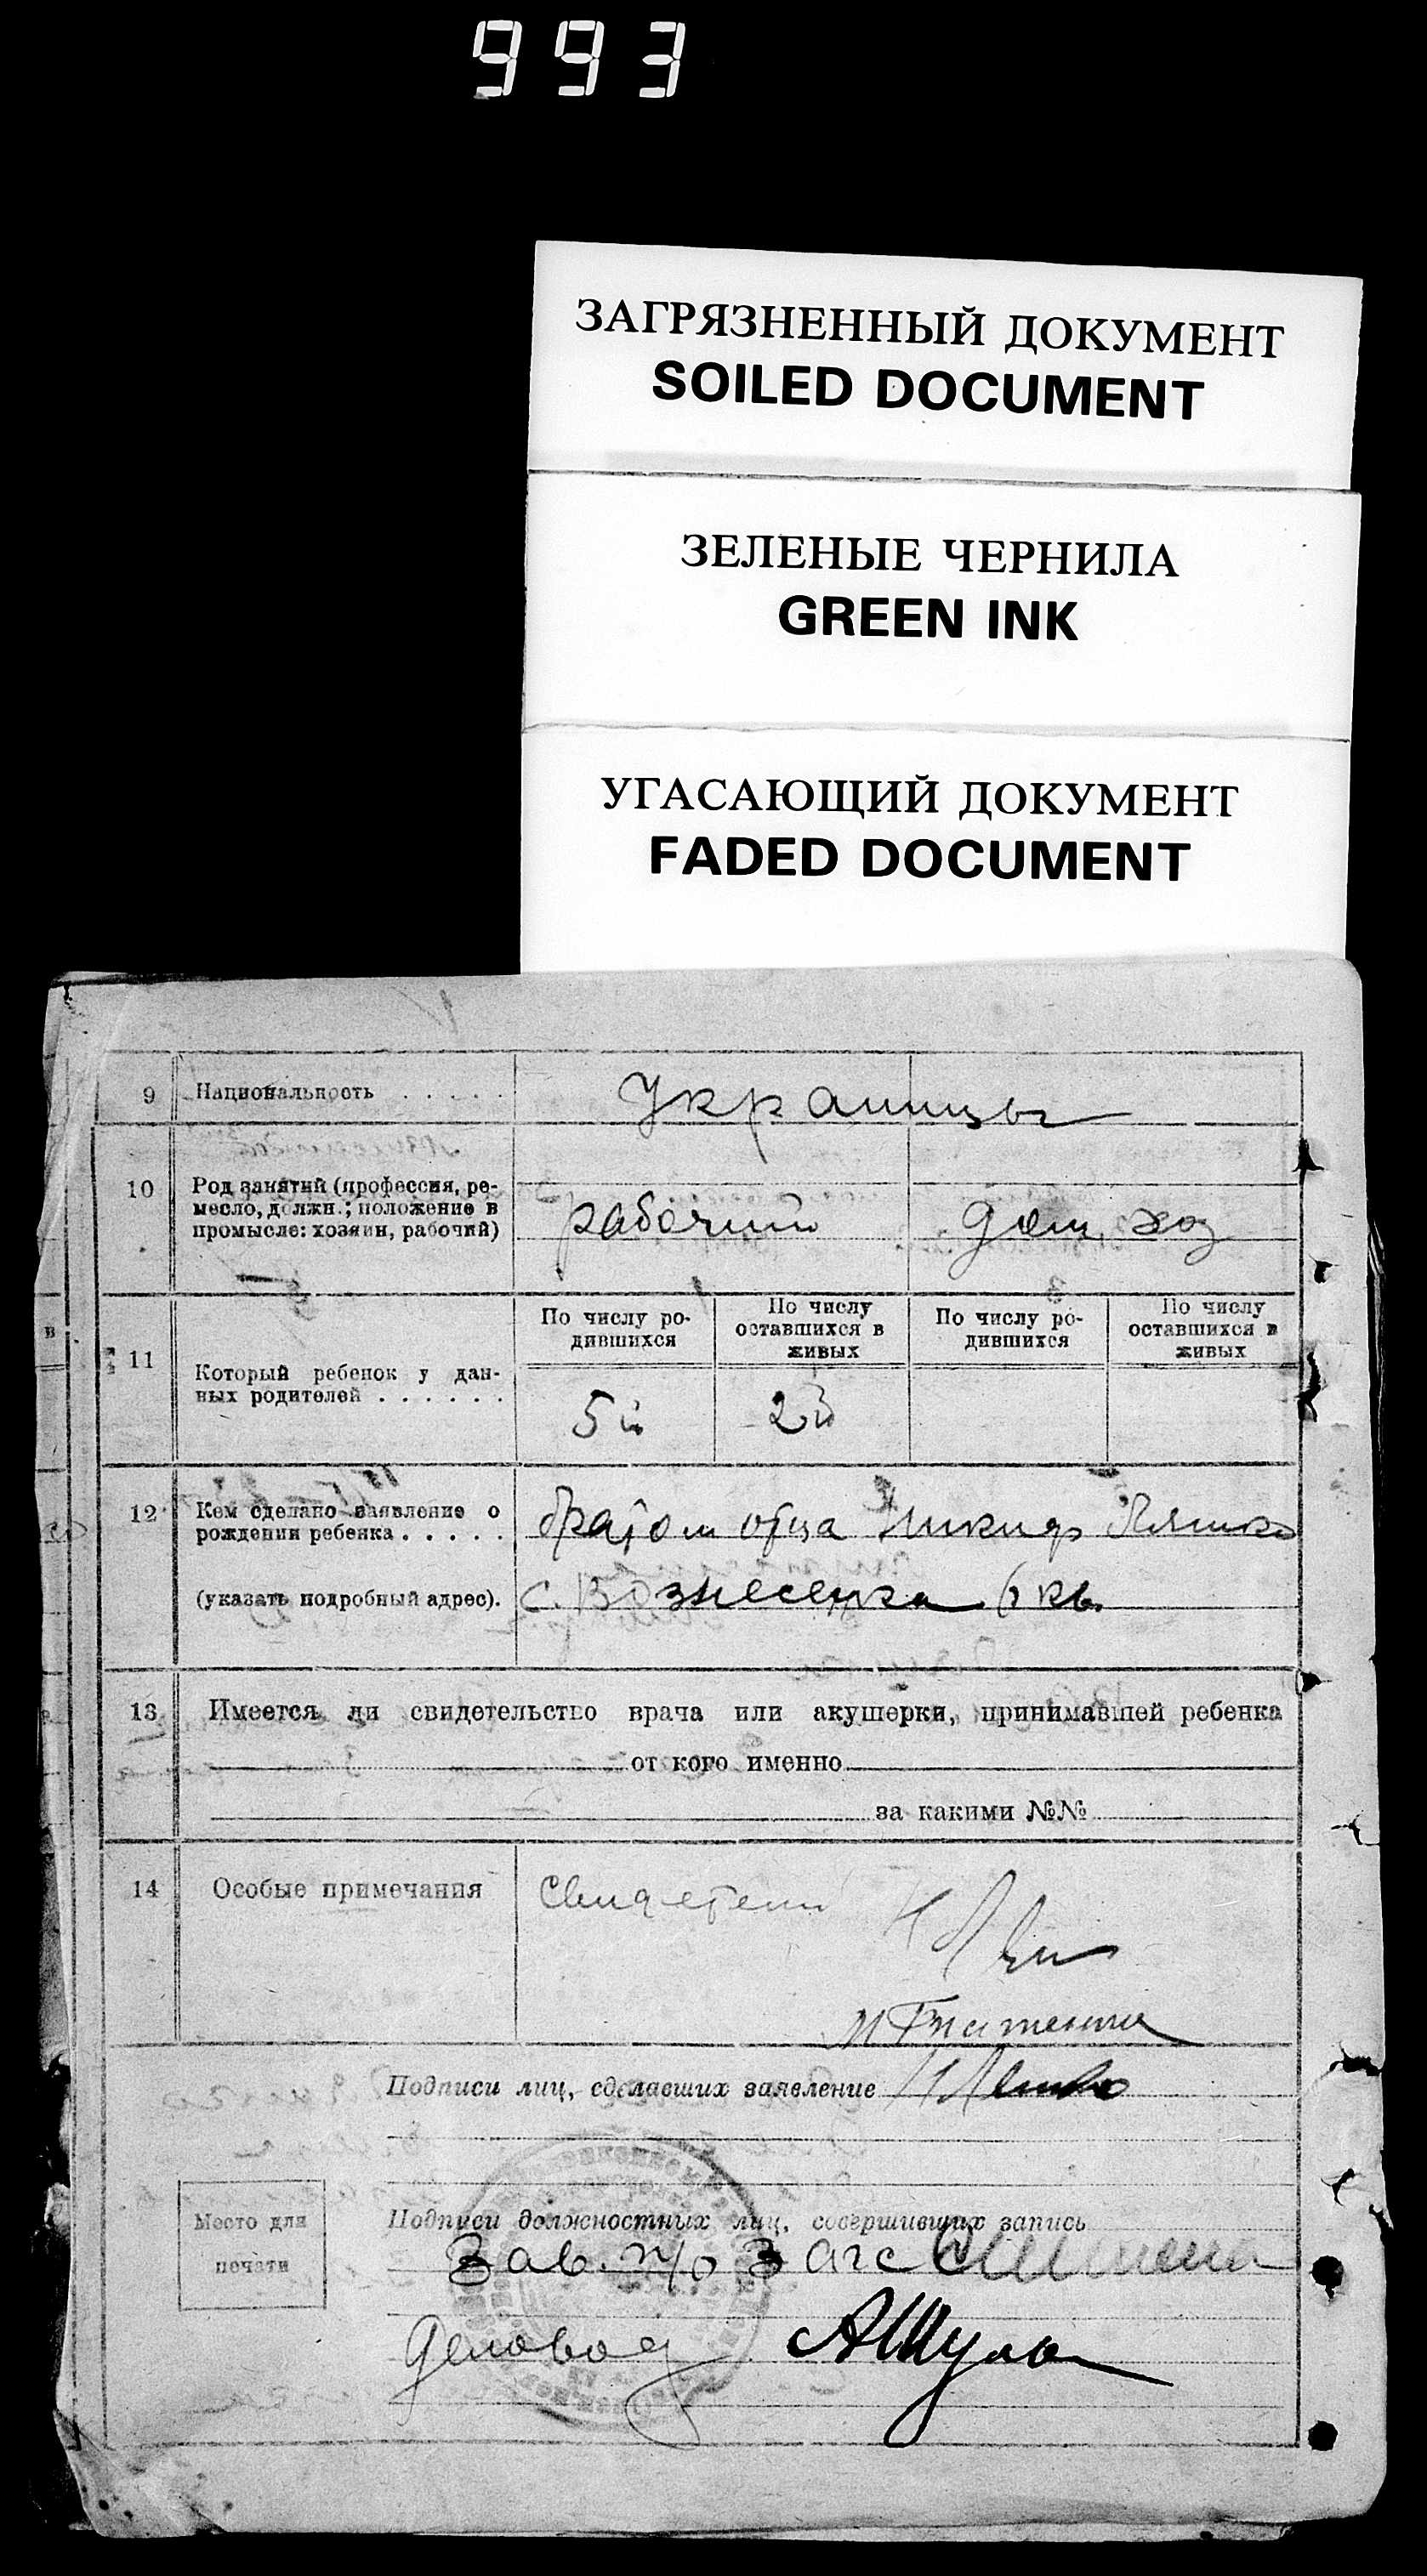 993
ЗАГРЯЗНЕННЫЙ ДОКУМЕНТ
SOILED DOCUMENT
ЗЕЛЕНЫЕ ЧЕРНИЛА
GREEN INK
УГАСАЮЩИЙ ДОКУМЕНТ
FADED DOCUMENT
9 Национальность . . . . . Украинцы
10 Род занятий (профессия, ре-
месло, должн.; положение в
промысле: хозяин, рабочий)
рабочий дом. хоз
11 Который ребенок у дан-
ных родителей . . . . . .
По числу ро-
дившихся
По числу
оставшихся в
живых
По числу ро-
дившихся
По числу
оставшихся в
живых
5й 2й
12 Кем сделано заявление о
рождении ребенка . . . . .
(указать подробный адрес).
братом отца Никиф Ляшко
с. Вознесенка 6 кв.
13 Имеется ли свидетельство врача или акушерки, принимавшей ребенка
от кого именно
за какими №№
14 Особые примечания
Свидетели
Подписи лиц, сделавших заявление
Место для
печати
Подписи должностных лиц, совершивших запись
Зав. п/о Загс
Деловод